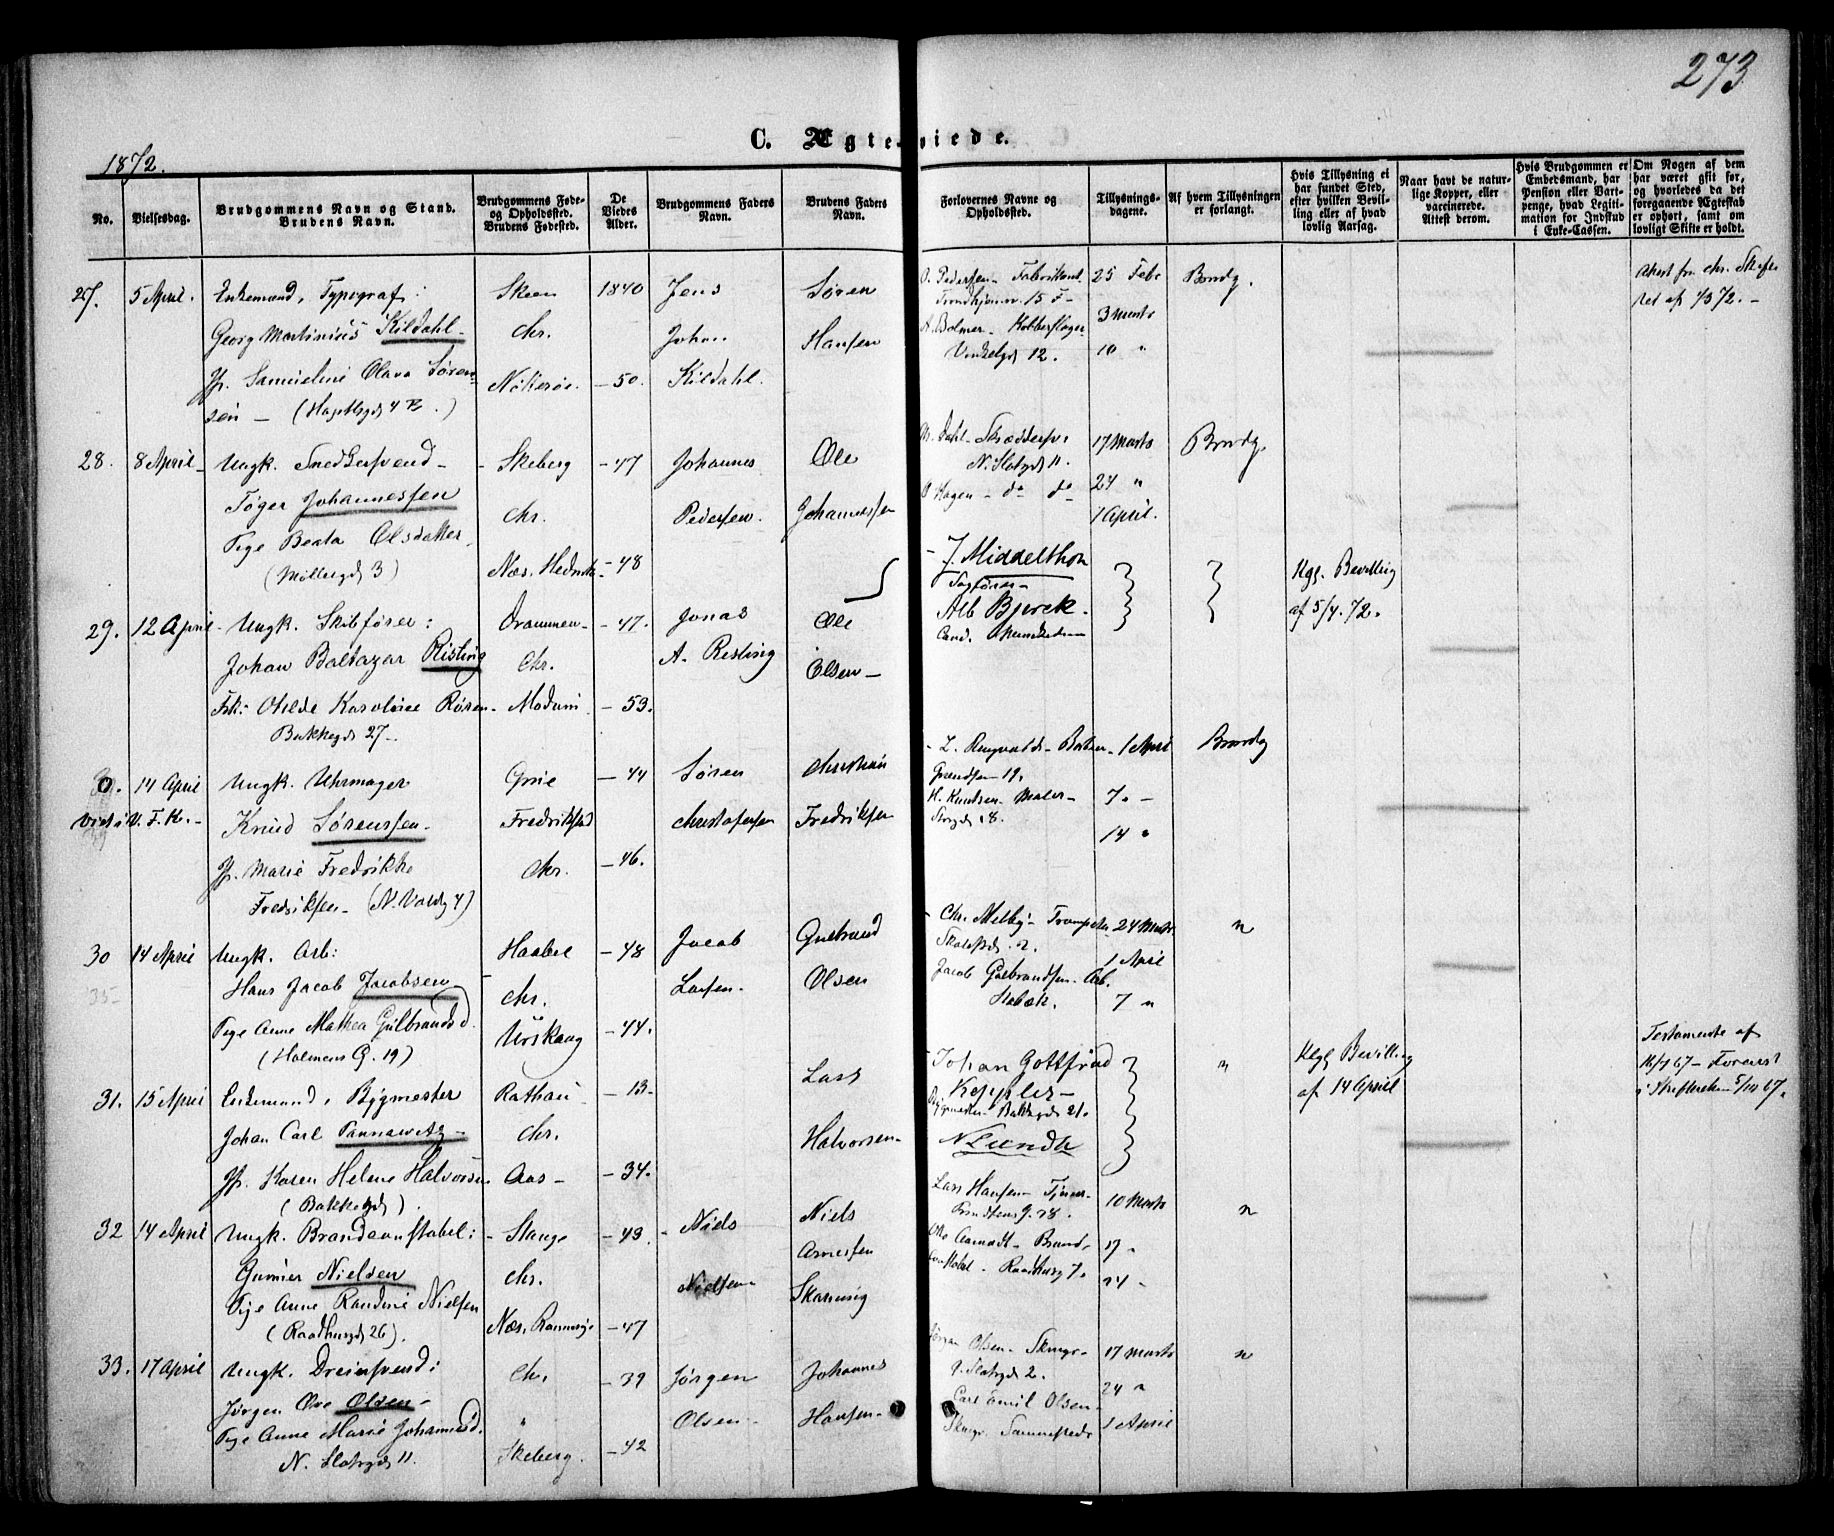 273
C. Ægteviede.
1872.
No.
Vielsesdag.
Brudgommens Navn og Stand.
Brudens Navn.
Brudgommens Føde-
og Opholdssted.
Brudens Fødested.
De
Viedes
Alder.
Brudgommens Faders
Navn.
Brudens Faders
Navn.
Forlovernes Navne og
Opholdssted.
Tillysnings-
dagene.
Af hvem Tillysningen
er forlangt.
Hvis Tillysning ei
har fundet Sted,
efter hvilken Bevil-
ling eller af hvad
lovlig Aarsag.
Naar havt de natur-
lige Kopper, eller
vaccinerede.
Attest derom.
Hvis Brudgommen er
Embedsmand, har
Pension eller Vart-
penge, hvad Legiti-
mation for Indskud
i Enke-Cassen.
Om Nogen af dem
har været gift før,
og hvorledes da det
foregaaende Ægteskab
er ophørt, samt om
lovligt Skifte er holdt.
27. 5 April. Enkemand, Typograf:
Georg Martinius Kildahl
Jfr. Samueline Olava Søren-
sen
Skeen
Chr.
1840
50.
Jens
Johan
Kildahl.
Søren
Hansen
O. Pedersen Fabrikant
15
A. Bolmer Kobberslager
12.
25 Febr
3 Marts
10 "
Brudg.
Attest fra Chr. Skifte
ret af 1/3 72.
28. 8 April Ungk. Snedkersvend
Tøger Johannessen
Pige Beata Olsdatter
(Møllergd 3)
Skeberg
Chr.
Næs. Hedm.
47
48
Johannes
Pedersen.
Ole
Johannessen
Dahl Skræddersv.
N. Slotsgd 11.
O Hagen do do
17 Marts
24 "
1 April.
Brudg.
29. 12 April Ungk. Skibsfører:
Johan Baltazar Risting
Frk: Otilde Karoline
Bakkegd 27
Drammen
Chr.
Modum
47.
53.
Jonas
A. Risting
Ole
Olsen
J. Middelthon
Alb Bjerck.
Cand.
Kgl. Bevilling
af 5/4. 72.
0. 14 April Ungk. Uhrmager
Viet i V. F. K.
Knud Sørensen
Jfr. Marie Fredrikke
Fredriksen (N. Voldg 4)
Fredrikstad
Chr.
44
46.
Søren
Christofersen
Christian
Fredriksen
L.
19.
H. Knudsen Maler
8.
1 April
7.
14 "
Brudg
30 14 April Ungk. Arb:
35
Hans Jacob Jacobsen
Pige Anne Mathea Gulbrandsd.
(Holmens G. 19)
Haabøl
Chr.
Urskoug
48
44.
Jacob
Larsen.
Gulbrand
Olsen
Chr. Melby Trompeter
2.
Jacob Gulbrandsen Arb.
Stabæk.
24 Marts
1 April
7 "
"
31. 15 April Enkemand, Bygmester
Johan Carl Pannawitz
Jfr. Karen Helene Halvorsen
(Bakkegd)
Rathau
Chr.
Aas
13.
34.
Lars
Halvorsen
Johan Gottfried
Keppler
Bygmester Bakkegd 21.
N Lunde
"
Kgl Bevilling
af 14 April
Testamente af
67
67.
32 14 April Ungk. Brandconstabel:
Gunner Nielsen
Pige Anne Randine Nielsen
(Raadhusgd 26).
Stange
Chr.
Næs,
43
47
Niels
Nielsen
Niels
Arnesen
Lars Hansen
28.
Otto Aamodt Brand-
constabel Raadhusg 7.
10 Marts
17 "
24
"
33. 17 April Ungk. Dreiersvend:
Jørgen Ove Olsen
Pige Anne Marie Johannesd.
N. Slotsgd 11.
Chr.
"
Skeberg.
39
42
Jørgen
Olsen
Johannes
Hansen
Jørgen Olsen
Slotsgd 2.
Carl Emil Olsen
17 Marts
24 "
1 April
"